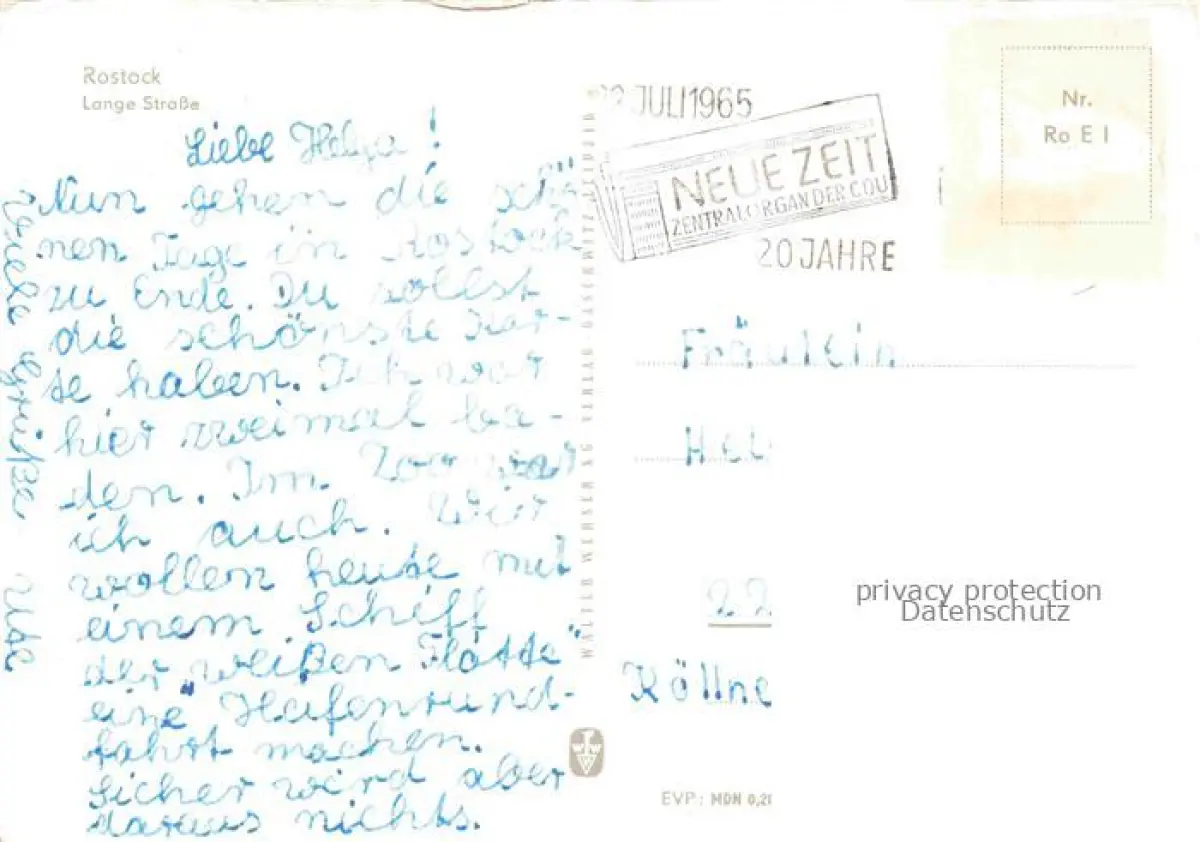 Rostock
Lange Straße
Liebe Helga!
Nun gehen die schö-
nen Tage in Rostock
zu Ende. Du sollst
die schönste Kar-
te haben. Ich war
hier zweimal ba-
den. Im Zoo war
ich auch. Wir
wollen heute mit
einem Schiff
der "weißen Flotte"
eine Hafenrund-
fahrt machen.
Sicher wird aber
daraus nichts.
Viele Grüße Ute
JULI 1965
NEUE ZEIT
ZENTRALORGAN DER CDU
20 JAHRE
Nr.
Ro E I
Fräulein
Hel
22
Kölln
privacy protection
Datenschutz
EVP: MDN 0,2